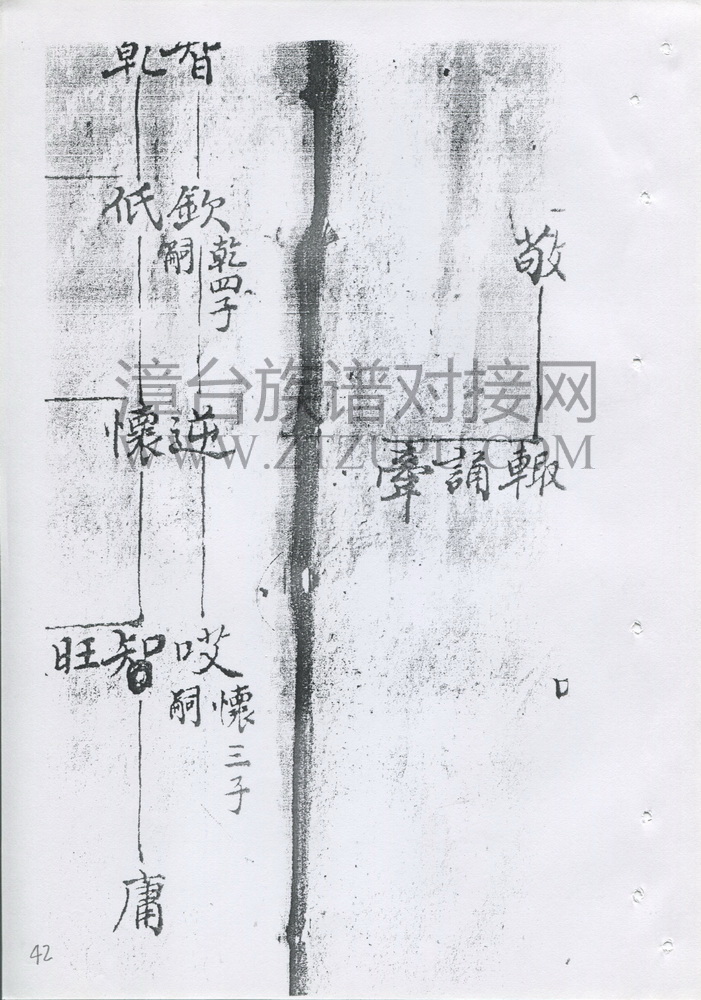 敬
轍
誦
牽
智
欽
乾四子
嗣
逆
哎
懷三子
嗣
乾
低
懷
智
庸
旺
漳台族谱对接网
WWW.ZTZUPU.COM
42